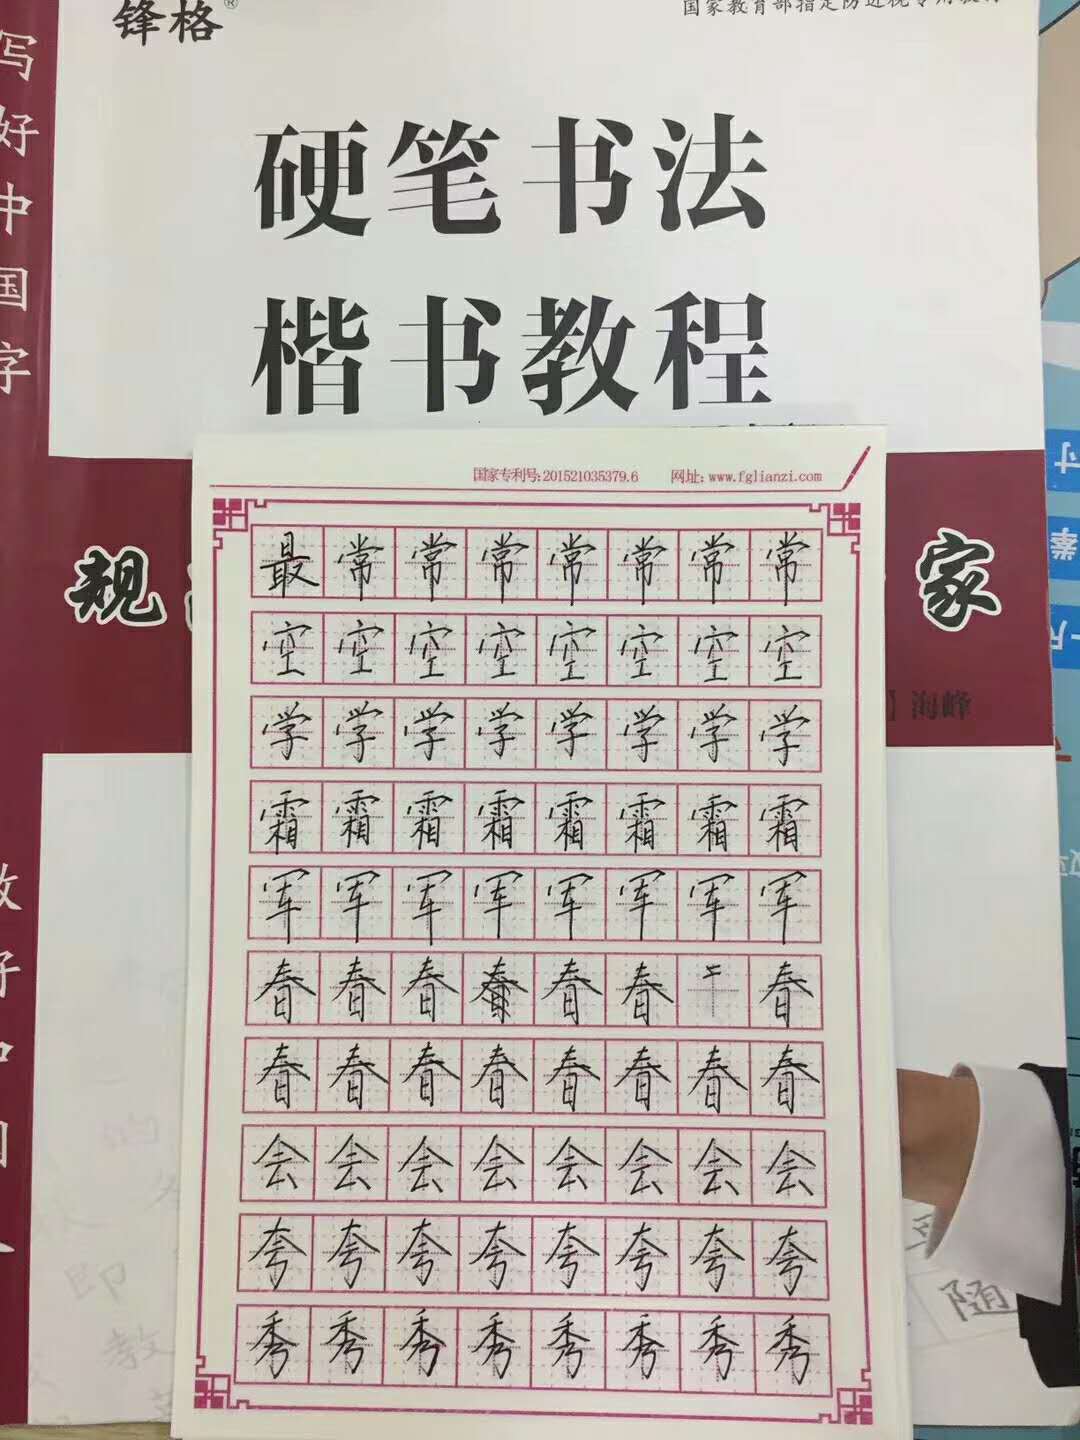 锋格®
国家教育部指定防近视专用教材
写好中国字
硬笔书法
楷书教程
国家专利号:201521035379.6 网址: www.fglianzi.com
靓
家
海峰
最常常常常常常常
空空空空空空空空
学学学学学学学学
霜霜霜霜霜霜霜霜
军军军军军军军军
春春春春春春 春
春春春春春春春春
会会会会会会会会
夸夸夸夸夸夸夸夸
秀秀秀秀秀秀秀秀
做好中国人
随
即
教